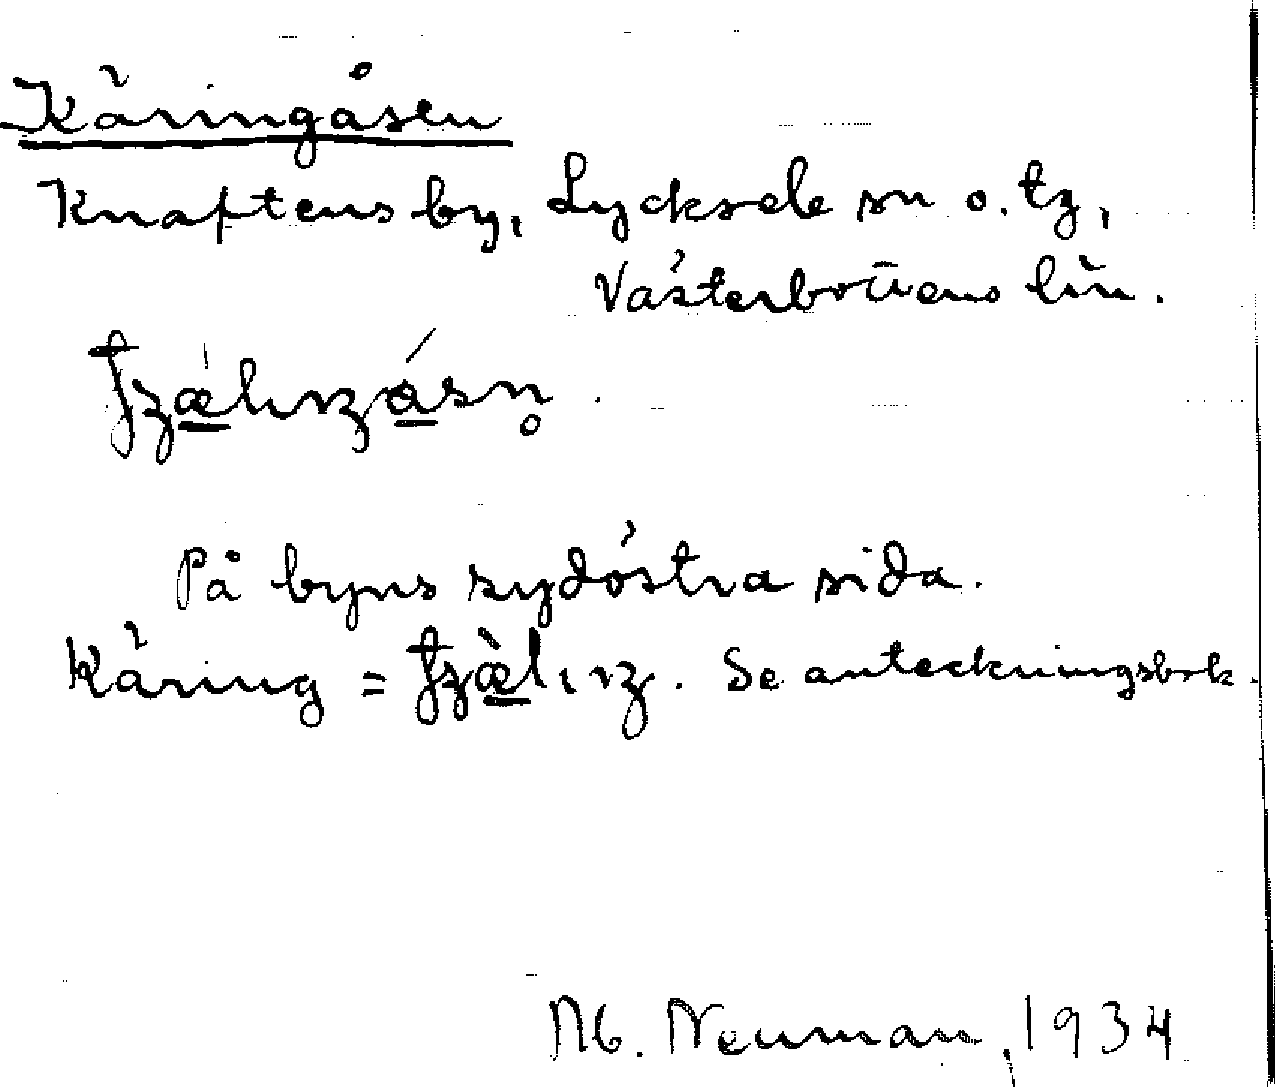 Käringåsen
Knaftens by, Lycksele sn o. tg,
Västerbottens län.
På byns sydöstra sida.
Käring = . Se anteckningsbok.
M. Neuman, 1934